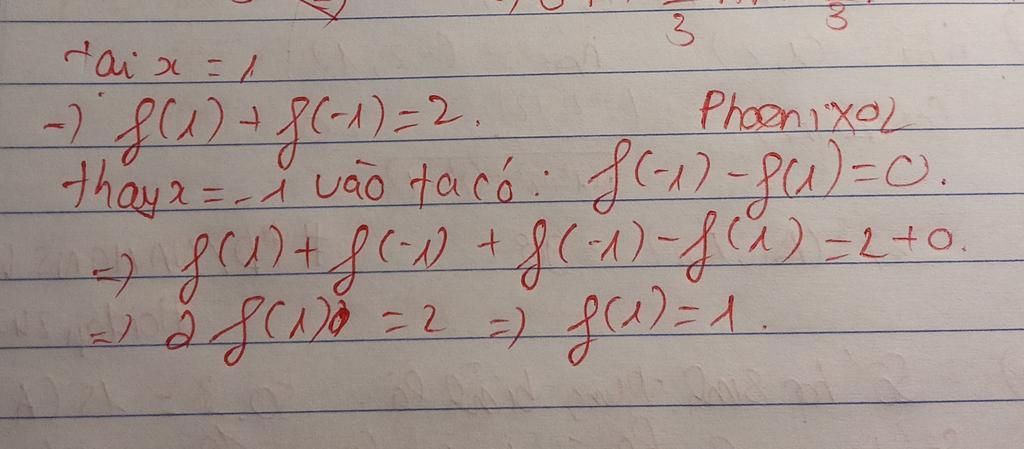 tai x = 1
-) f(1) + f(-1) = 2.
PhoenixOL
thay x = -1 vào ta có: f(-1) - f(1) = 0.
=) f(1) + f(-1) + f(-1) - f(1) = 2 + 0.
=) 2 f(1) = 2 =) f(1) = 1.